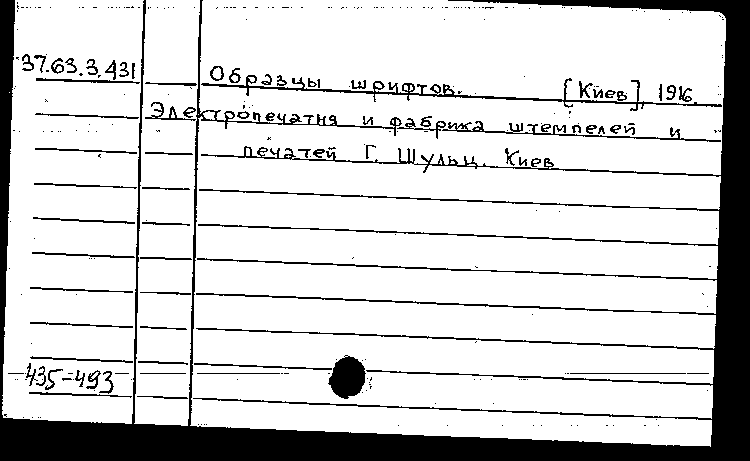 37.63.3.431
Образцы шрифтов. [Киев], 1916.
Электропечатня и фабрика штемпелей и
печатей Г. Шульц. Киев
435-493